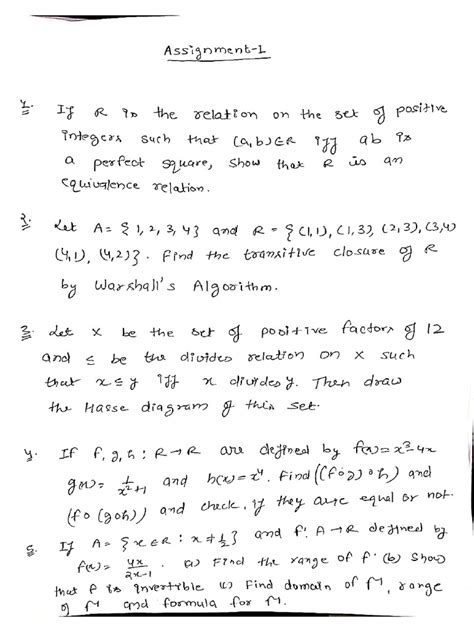 Assignment-1
1. If R is the relation on the set of positive
integers such that (a,b)∈R iff ab is
a perfect square, show that R is an
equivalence relation.
2. Let A = {1, 2, 3, 4} and R = {(1,1), (1,3), (2,3), (3,4)
(4,1), (4,2)}. Find the transitive closure of R
by Warshall's Algorithm.
3. Let X be the set of positive factors of 12
and ≤ be the divides relation on X such
that x ≤ y iff x divides y. Then draw
the Hasse diagram of this set.
4. If f, g, h : R→R are defined by f(x) = x³-4x
g(x) = 1/(x²+1) and h(x) = x⁴. Find ((fog)oh) and
(fo(goh)) and check, if they are equal or not.
5. If A = {x∈R : x ≠ 1/2} and f: A→R defined by
f(x) = 4x/(2x-1). (a) Find the range of f. (b) Show
that f is invertible (c) Find domain of f⁻¹, range
of f⁻¹ and formula for f⁻¹.